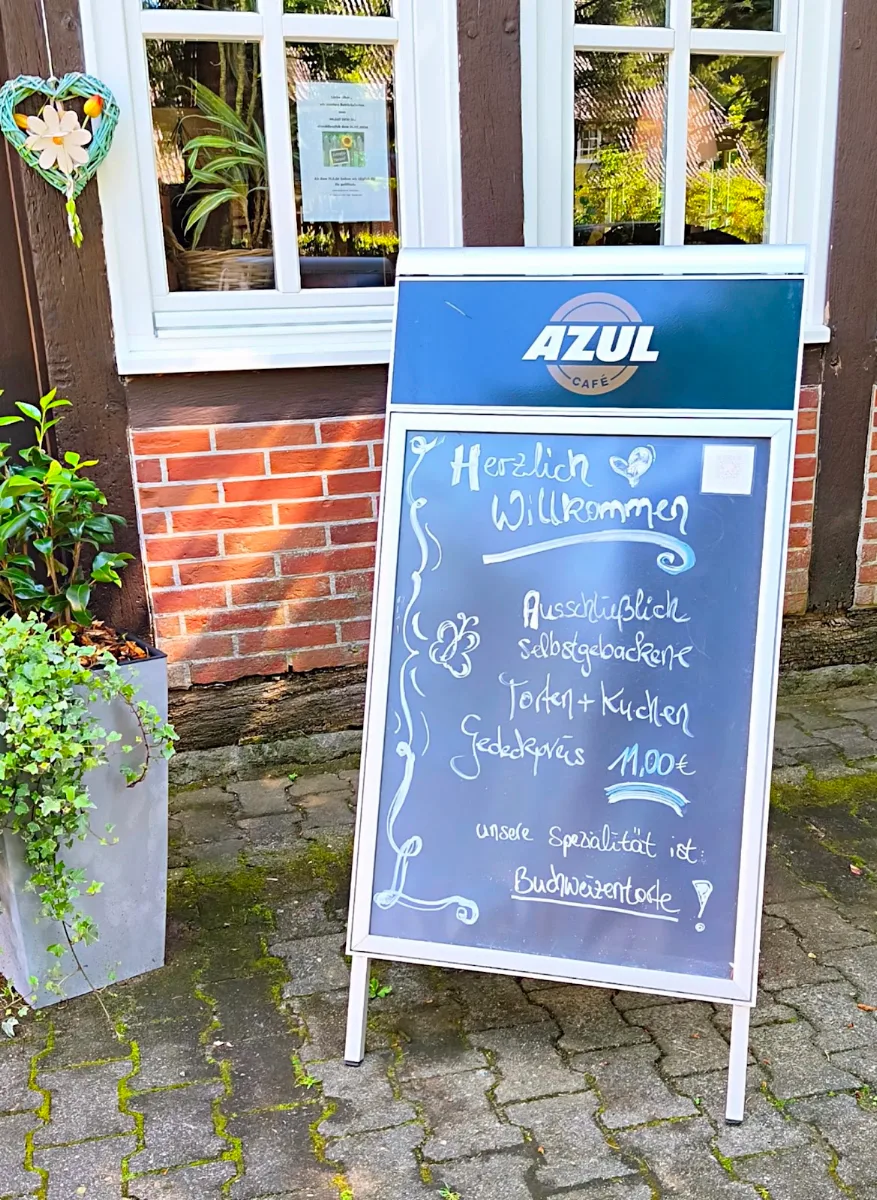 AZUL
CAFÉ
Herzlich
Willkommen
Ausschließlich
selbstgebackene
Torten + Kuchen
Gedeckpreis 11,00€
unsere Spezialität ist:
Buchweizentorte!